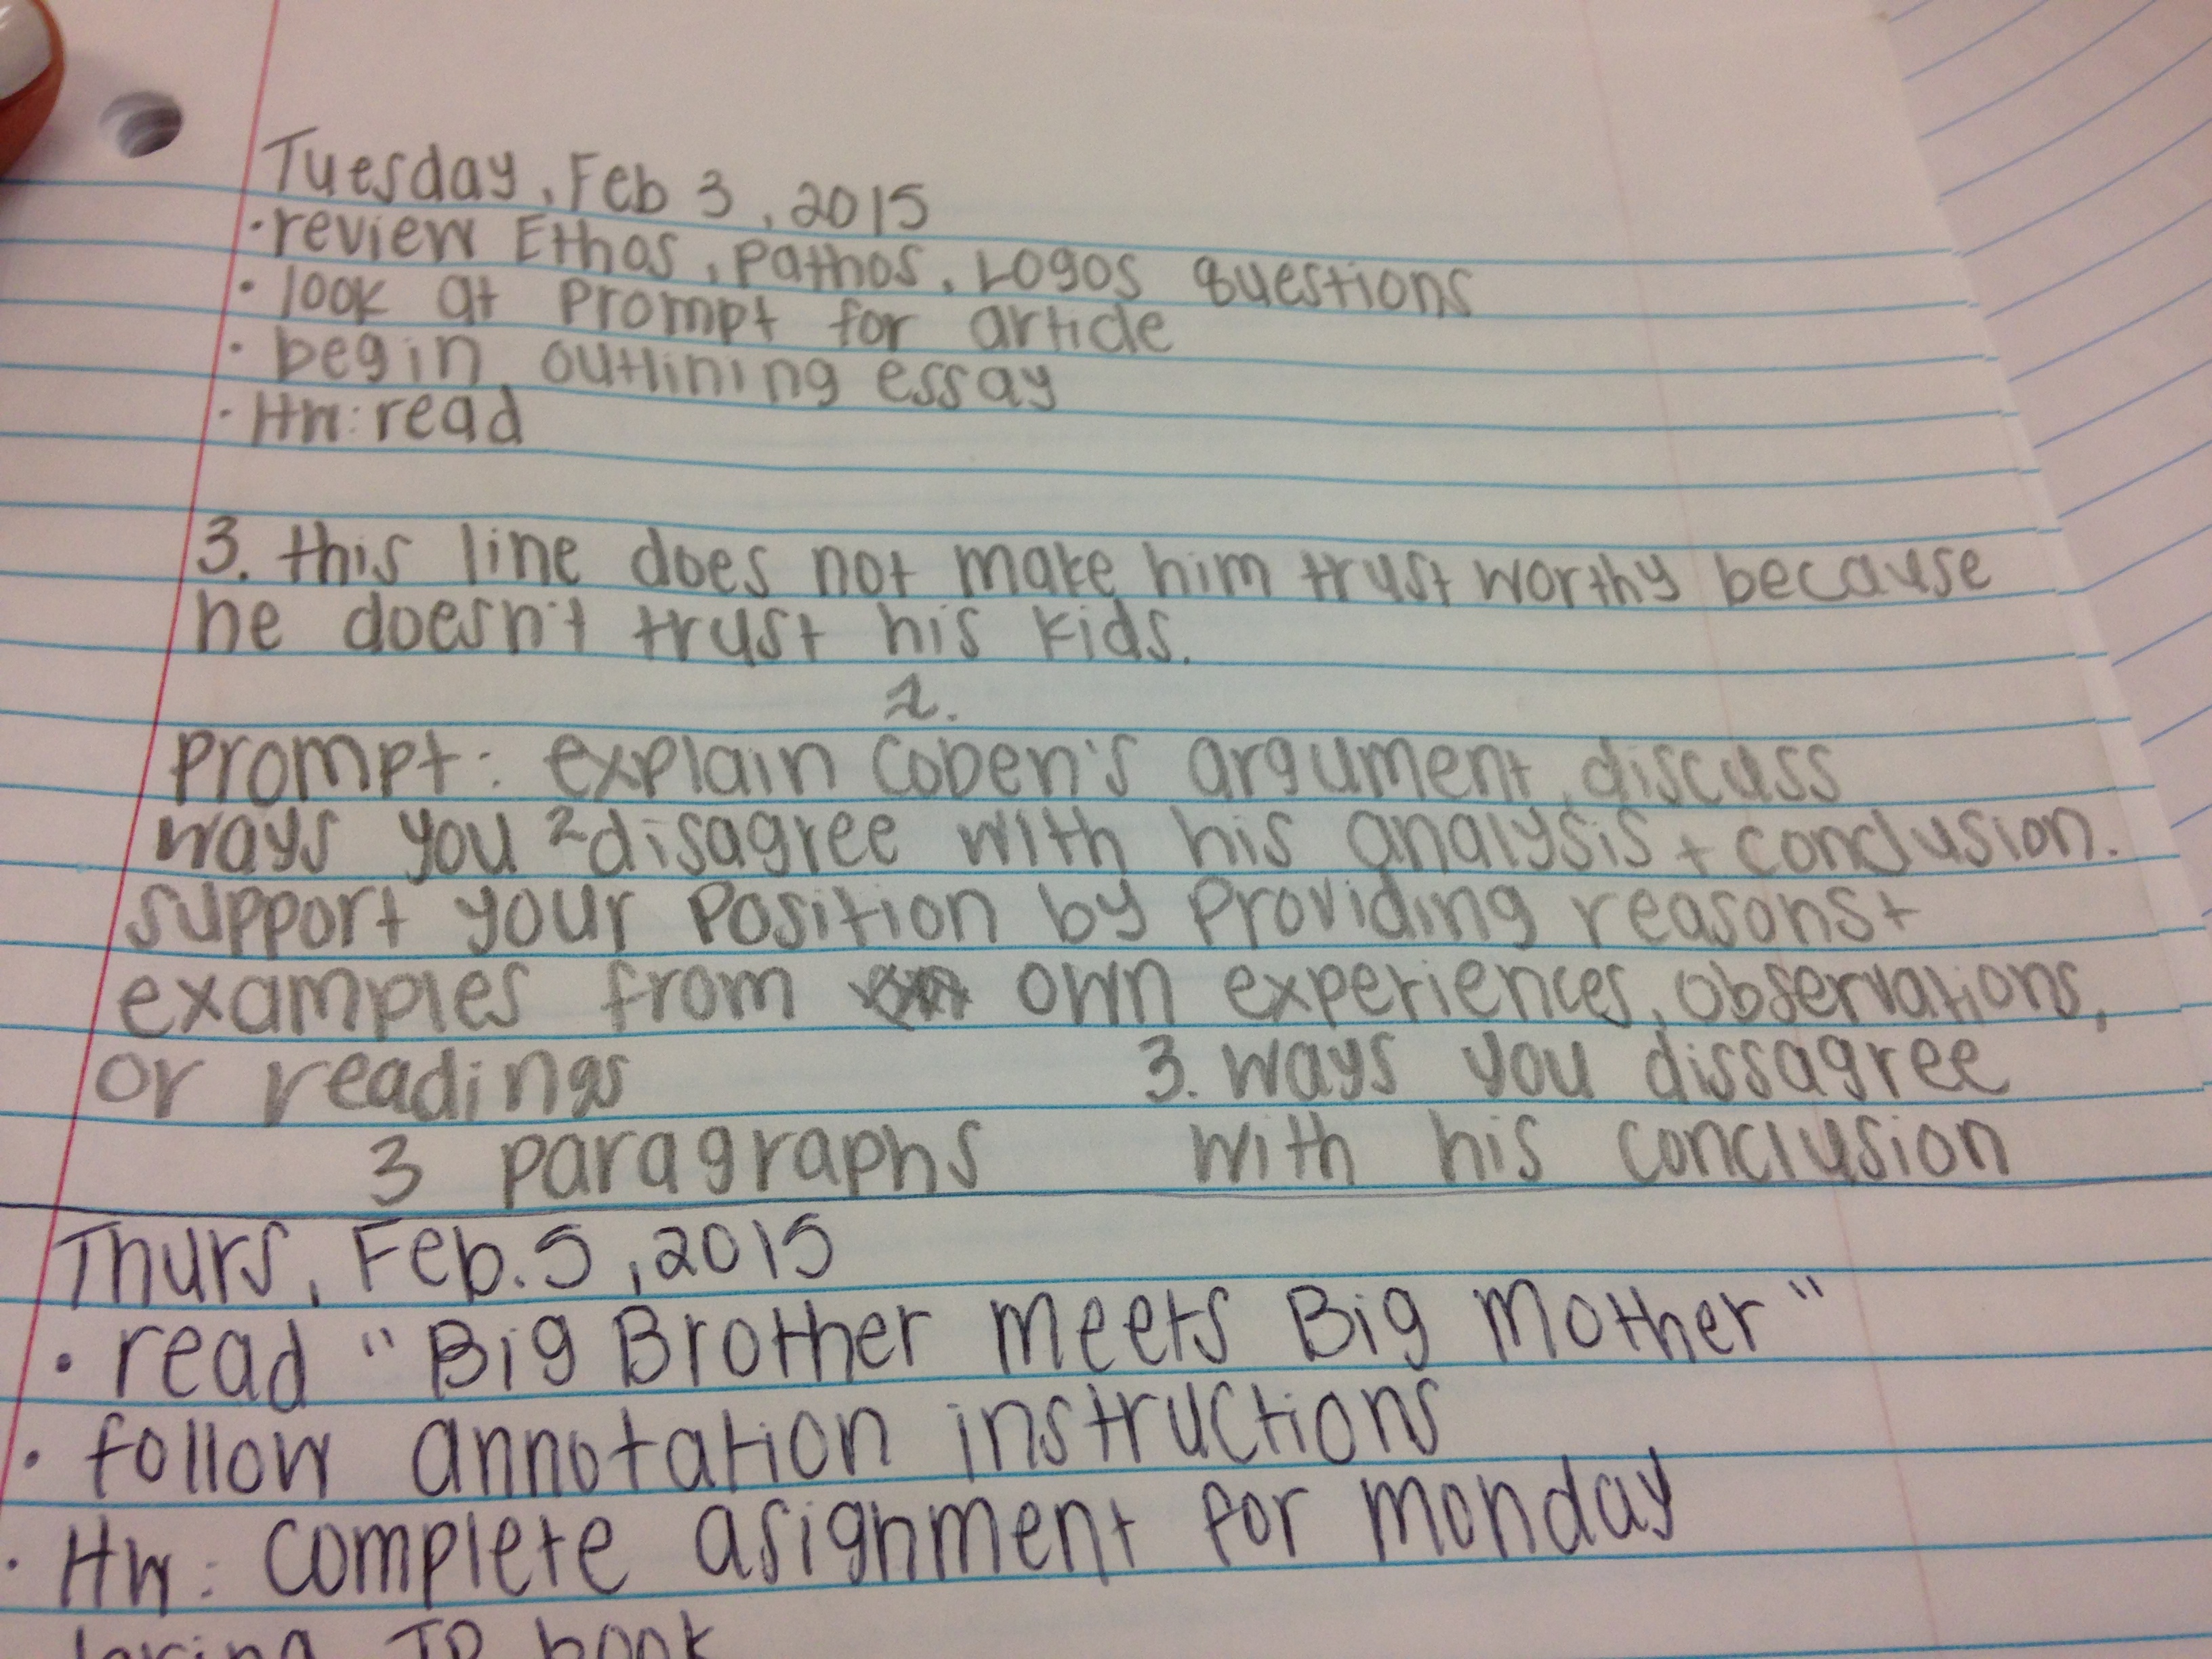 Tuesday, Feb 3, 2015
· review Ethos, Pathos, Logos questions
· look at prompt for article
· begin outlining essay
· Hw: read
3. this line does not make him trust worthy because
he doesn't trust his kids.
2.
Prompt: explain Coben's argument, discuss
ways you 2 disagree with his analysis + conclusion.
support your position by providing reasons +
examples from own experiences, observations,
or readings
3. ways you dissagree
3 paragraphs with his conclusion
Thurs, Feb. 5, 2015
· read "Big Brother meets Big Mother"
· follow annotation instructions
· Hw: complete asignment for monday
book